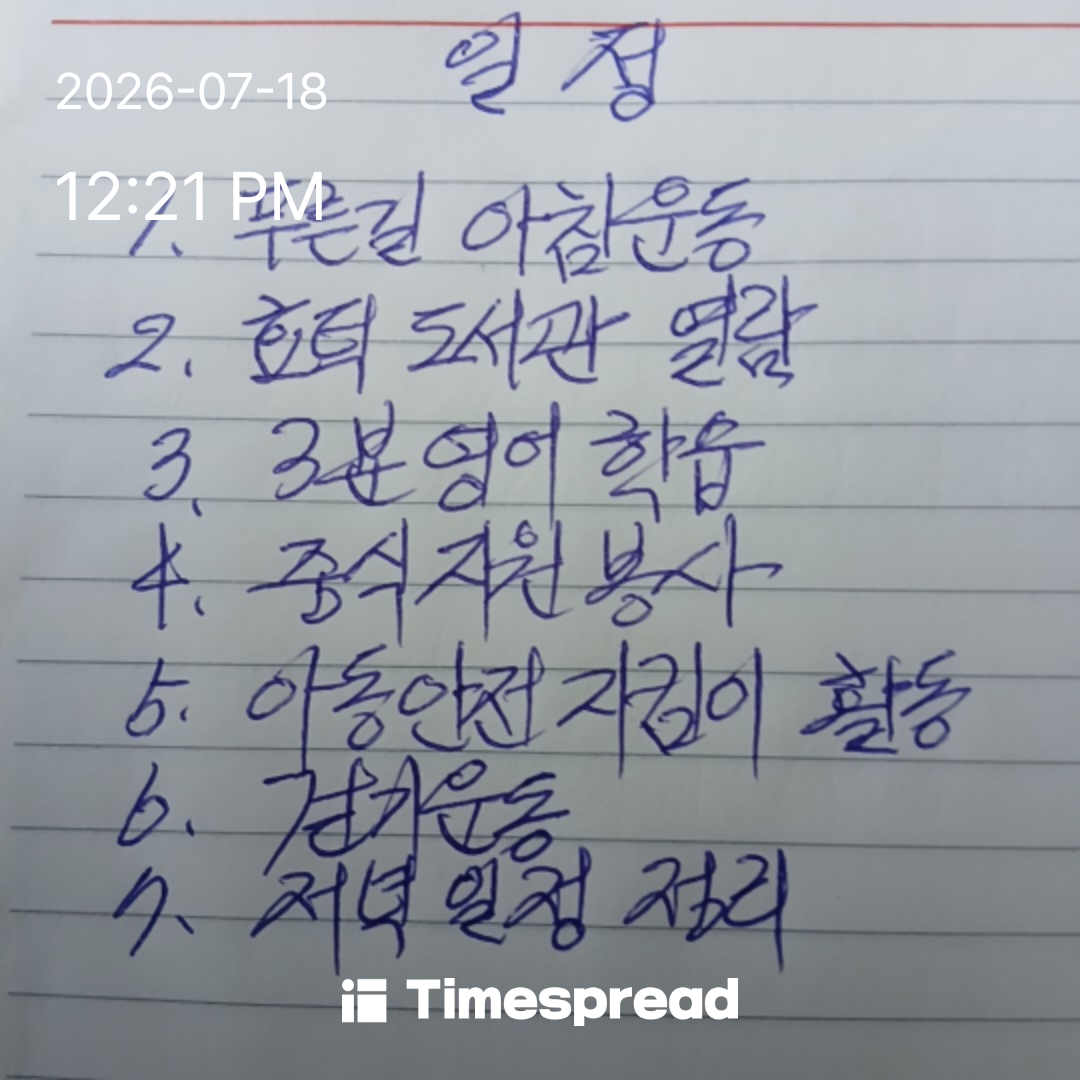 일정
2026-07-18
12:21 PM
1. 푸른길 아침운동
2. 효덕 도서관 열람
3. 3분 영어 학습
4. 중식 자원 봉사
5. 아동안전 지킴이 활동
6. 걷기운동
7. 저녁 일정 정리
Timespread